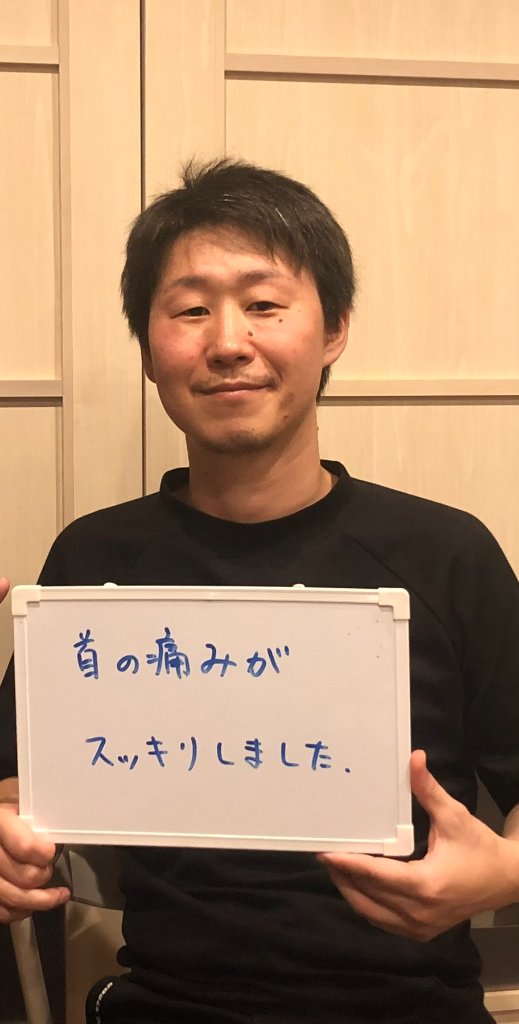 首の痛みが
スッキリしました.